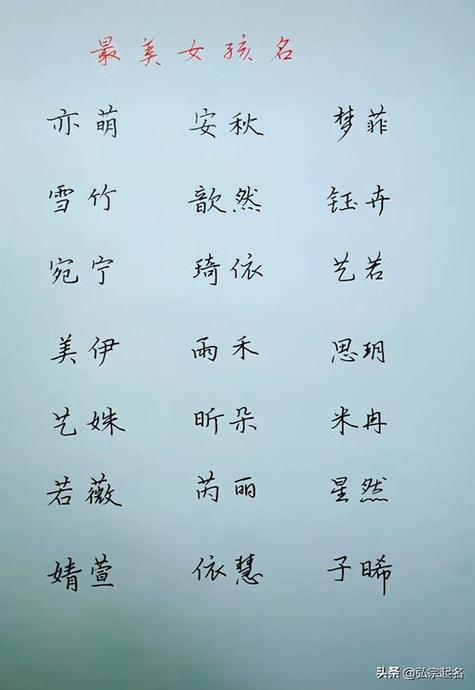 最美女孩名
亦萌 安秋 梦菲
雪竹 歆然 钰卉
宛宁 琦依 艺若
美伊 雨禾 思玥
艺姝 昕朵 米冉
若薇 芮丽 星然
婧萱 依慧 子晞
头条 @弘宗起名